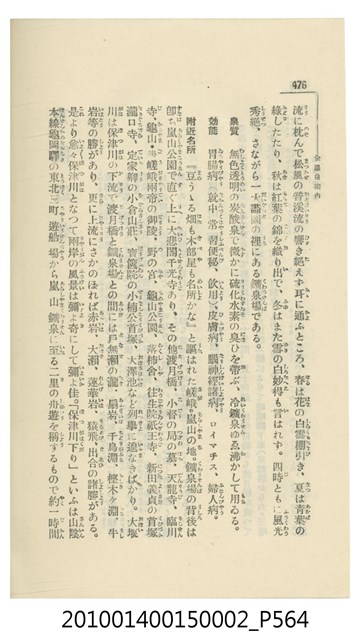 476
全國鑛泉案内
流に枕んで松風の音溪流の響き絶えず耳に通ふところ、春は花の白雲棚引き、夏は青葉の
綠したたり、秋は紅葉の錦を織り出で、冬はまた雪の白妙得も言はれず。四時ともに風光
秀絶、さながら一大畵圖の裡にある鑛泉場である。
泉質 無色透明の炭酸泉で微かに硫化水素の臭ひを帶ぶ、冷鑛泉ゆゑ沸かして用ゐる。
効能 胃腸病(就中常習便秘、飲用)、皮膚病、腦神經病、ロイマチス、婦人病。
附近名所 『豆うゝる畑も木部屋も名所かな』と謳はれた嵯峨、嵐山の地。鑛泉場の背後は
即ち嵐山公園で直ぐ上に大悲閣千光寺あり、その他渡月橋、小督の局の墓、天龍寺、臨川
寺、龜山、嵯峨兩帝の御陵、野の宮、龜山公園、落柿舍、往生院祇王寺、新田義貞の首塚
瀧口寺、定家卿の小倉山莊、寶篋院の小楠公首塚、大澤池など列擧に遑なきばかり。大堰
川は保津川の下流で渡月橋と鑛泉場との間には戸無瀬の瀧、屏岩、千鳥淵、樫木淵、牛
岩等の勝があり、更に上流にさかのぼれば赤岩、大瀬、蓮華岩、猿飛、出合の諸勝がある。
是より愈々保津川となつて兩岸の風景は彌よ奇にして彌よ佳。『保津川下り』といふは山陰
本線龜岡驛の東北三町遊船場から嵐山鑛泉に至る二里の舟遊を稱するもので約一時間
201001400150002_P564